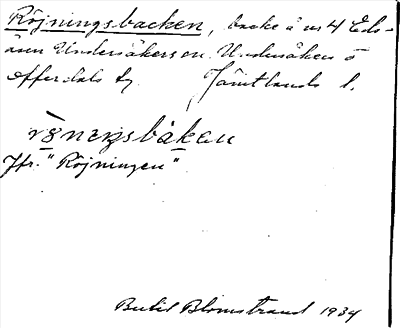 Röjningsbacken, backe å nr 4 Eds-
åsen Undersåkers sn. Undersåkers o
Offerdals tg Jämtlands l.
röneŋsbàkan
Jfr. "Röjningen"
Bertil Blomstrand 1934